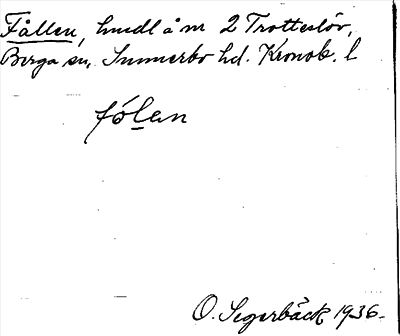 Fållen, hmdl å nr 2 Trotteslöv,
Berga sn, Sunnerbo hd. Kronob. l
fó̲lan
O. Segerbäck 1936.